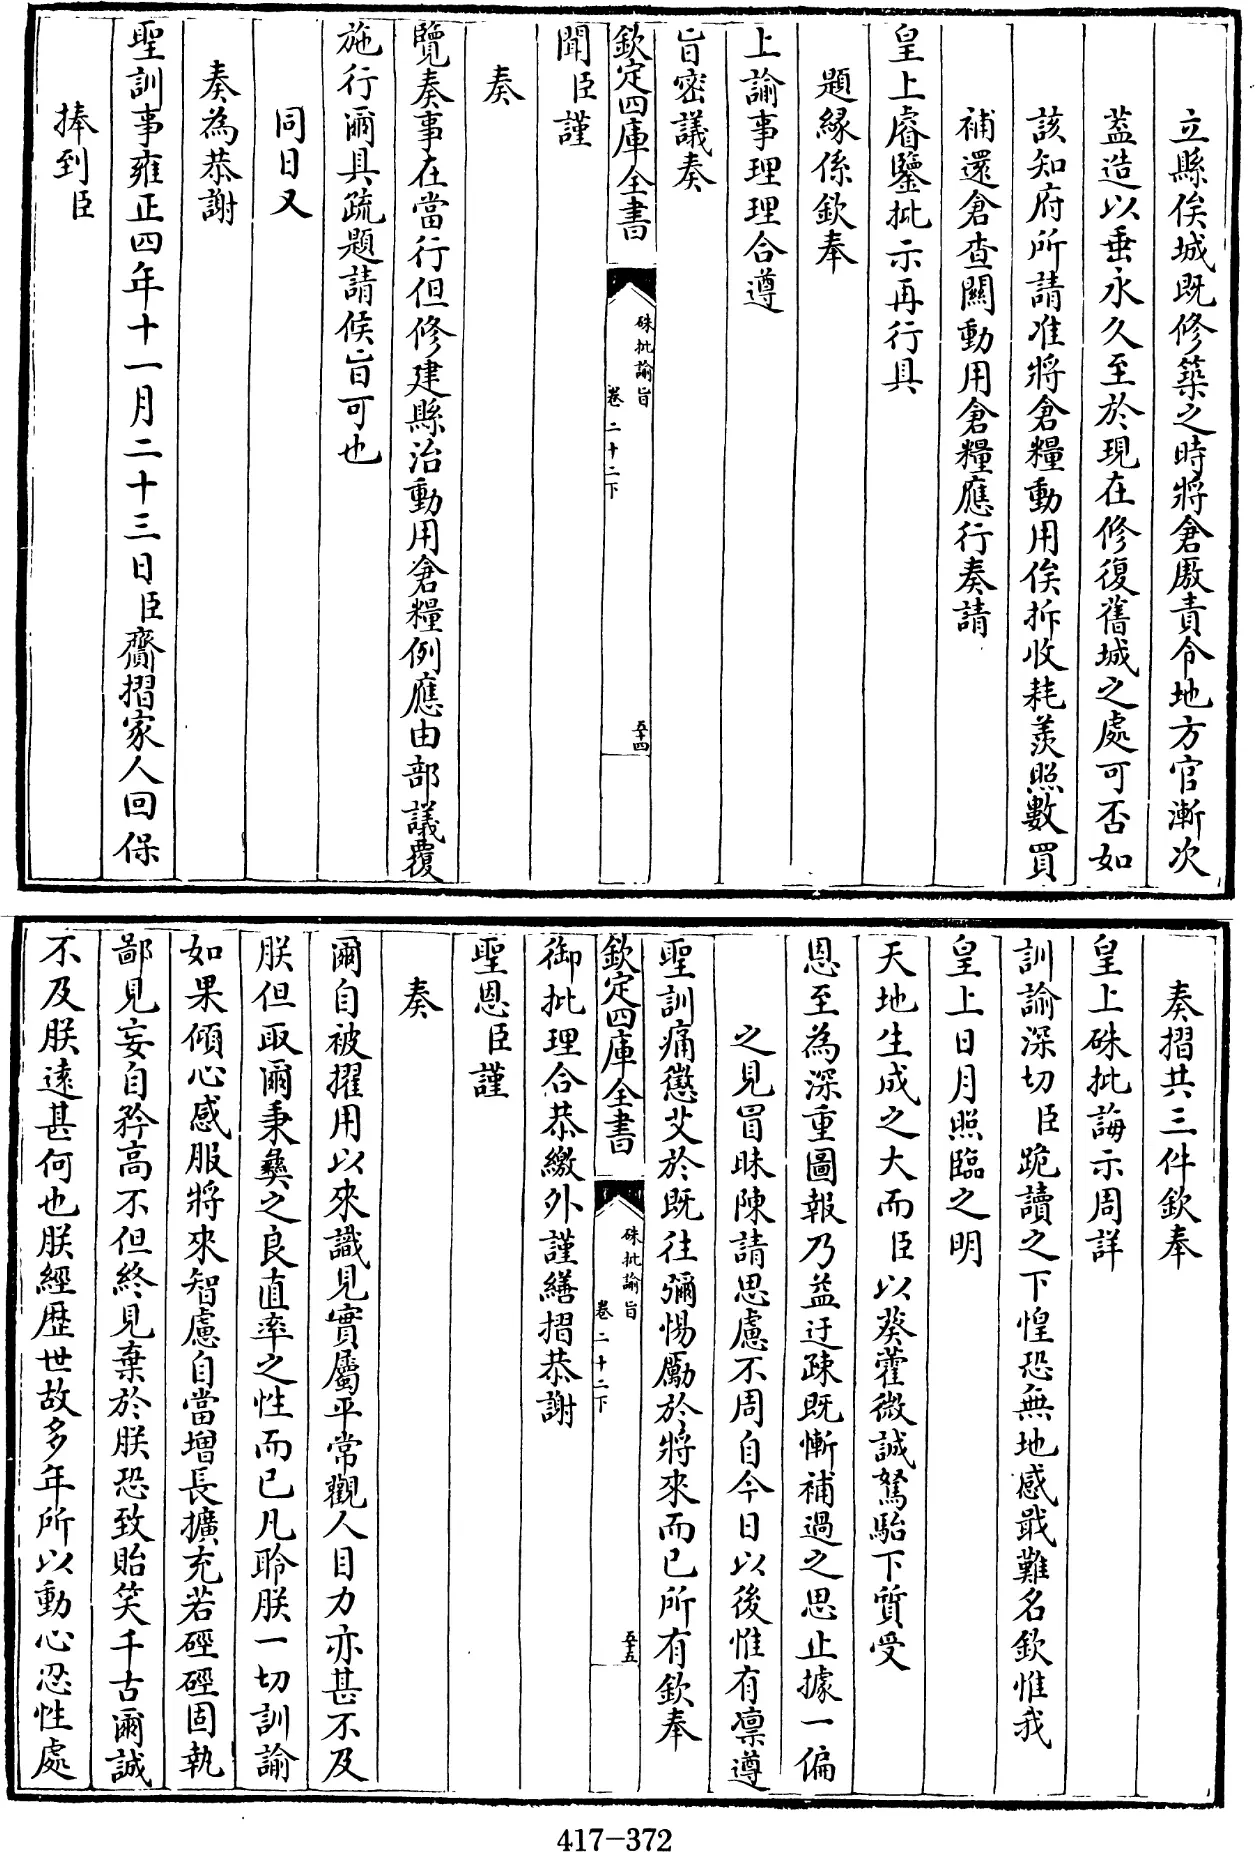 立縣俟城既修築之時將倉厫責令地方官漸次
葢造以垂永久至於現在修復舊城之處可否如
該知府所請准將倉糧動用俟拆收耗羨照數買
補還倉查關動用倉糧應行奏請
皇上睿鑒批示再行具
題緣係欽奉
上諭事理理合遵
旨密議奏
欽定四庫全書
硃批諭旨
卷二十二下
五十四
聞臣謹
奏
覽奏事在當行但修建縣治動用倉糧例應由部議覆
施行爾具疏題請候旨可也
同日又
奏為恭謝
聖訓事雍正四年十一月二十三日臣齎摺家人回保
捧到臣
奏摺共三件欽奉
皇上硃批誨示周詳
訓諭深切臣跪讀之下惶恐無地感戢難名欽惟我
皇上日月照臨之明
天地生成之大而臣以葵藿微誠駑駘下質受
恩至為深重圖報乃益迂疎既慚補過之思止據一偏
之見冒昧陳請思慮不周自今日以後惟有凜遵
聖訓痛懲艾於既往彌惕勵於將來而已所有欽奉
欽定四庫全書
硃批諭旨
卷二十二下
五十五
御批理合恭繳外謹繕摺恭謝
聖恩臣謹
奏
爾自被擢用以來識見實屬平常觀人目力亦甚不及
朕但取爾秉彝之良直率之性而已凡聆朕一切訓諭
如果傾心感服將來智慮自當增長擴充若硜硜固執
鄙見妄自矜高不但終見棄於朕恐致貽笑千古爾誠
不及朕遠甚何也朕經歷世故多年所以動心忍性處
417-372